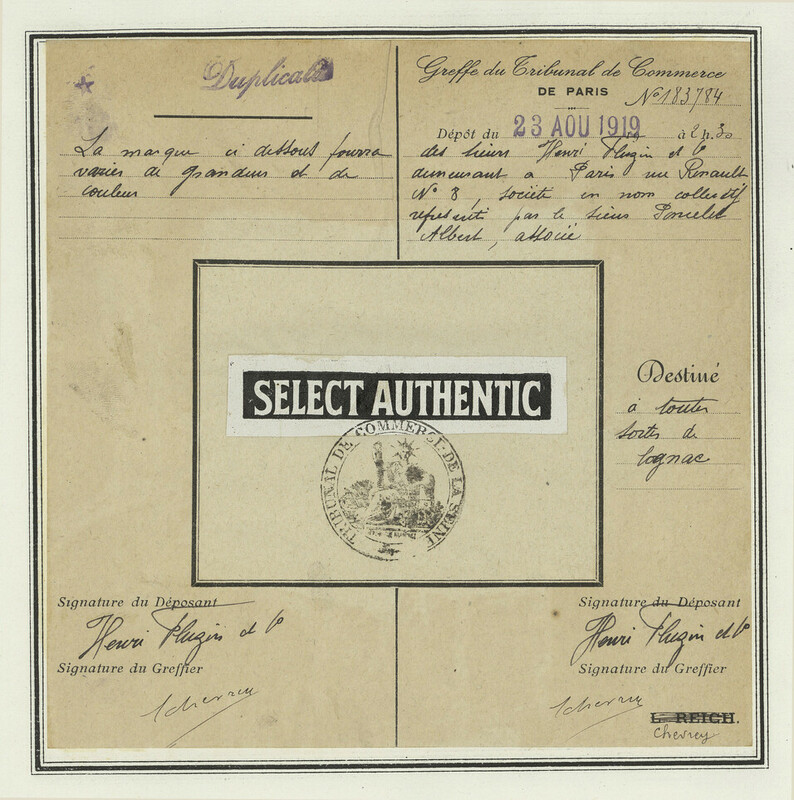 Duplicata
La marque ci dessous pourra
varier de grandeur et de
couleur
Greffe du Tribunal de Commerce
DE PARIS
No 183784
Dépôt du 23 AOU 1919 à 2 h. 30
des sieurs Henri Plugin et Co
demeurant a Paris rue Renault
No 8, société en nom collectif
représenté par le sieur Poncelet
Albert, associé
SELECT AUTHENTIC
TRIBUNAL DE COMMERCE DE LA SEINE
Destiné
à toutes
sortes de
Cognac
Signature du Déposant
Henri Plugin et Co
Signature du Greffier
Chevrey
Signature du Déposant
Henri Plugin et Co
Signature du Greffier
Chevrey
L. REICH.
Chevrey